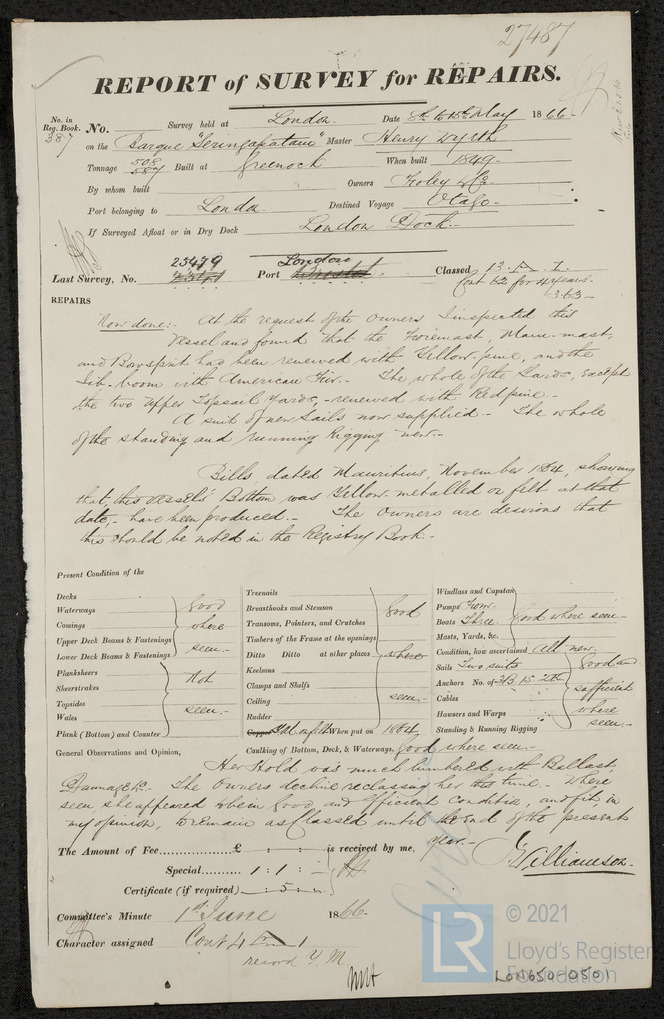 27487
REPORT of SURVEY for REPAIRS.
No. in Reg. Book. 387 No. Survey held at London Date 8th to 15th May 1866
on the Barque "Seringapatam" Master Henry
Tonnage 508 587 Built at Greenock When built 1849
By whom built Owners Foley & Co.
Port belonging to London Destined Voyage Otago
If Surveyed Afloat or in Dry Dock London Dock
Last Survey, No. 25479 Port London Classed 13. A. 1.
Cont 62 for 4 years.
3.63
REPAIRS
Now done:- At the request of the Owners I inspected this
Vessel and found that the Foremast, Main-mast,
and Bowsprit had been renewed with Yellow-pine, and the
Jib-boom with American Fir.- The whole of the Yards, except
the two Upper Topsail Yards,- renewed with Redpine.-
A suit of new Sails now supplied.- The whole
of the standing and running Rigging new.-
Bills, dated Mauritius, November 1864, showing
that, this vessel's Bottom was Yellow-metalled or felt at that
date,- have been produced.- The Owners are desirous that
this should be noted in the Registry Book.-
Present Condition of the
Decks
Waterways
Comings
Upper Deck Beams & Fastenings
Lower Deck Beams & Fastenings
Good where seen.-
Planksheers
Sheerstrakes
Topsides
Wales
Plank (Bottom) and Counter
Not seen.-
Treenails
Breasthooks and Stemson
Transoms, Pointers, and Crutches
Timbers of the Frame at the openings
Ditto Ditto at other places
Keelsons
Clamps and Shelfs
Ceiling
Rudder
Good where seen.-
Copper Y.M. on felt When put on 1864
Windlass and Capstan
Pumps Iron
Boats Three
Masts, Yards, &c.
Good where seen.-
Condition, how ascertained All new.
Sails Two suits
Anchors No. of 3B. 1S. 2K
Cables
Hawsers and Warps
Standing & Running Rigging
Good and sufficient where seen.-
General Observations and Opinion,
Caulking of Bottom, Deck, & Waterways, Good where seen.-
Her Hold was much lumbered with Ballast
Dunnage &c.- The Owners decline reclassing her this time.- Where
seen, she appeared when in good, and efficient Condition, and fit, in
my opinion, to remain as Classed until the end of the present
year.-
The Amount of Fee £ : : is received by me,
Special 1 : 1 : -
Certificate (if required) 5
J. Williamson
Committee's Minute 1st June 1866
Character assigned Cont 4
record Y.M.
LR
© 2021
Lloyd's Register
Foundation
LON650-0501